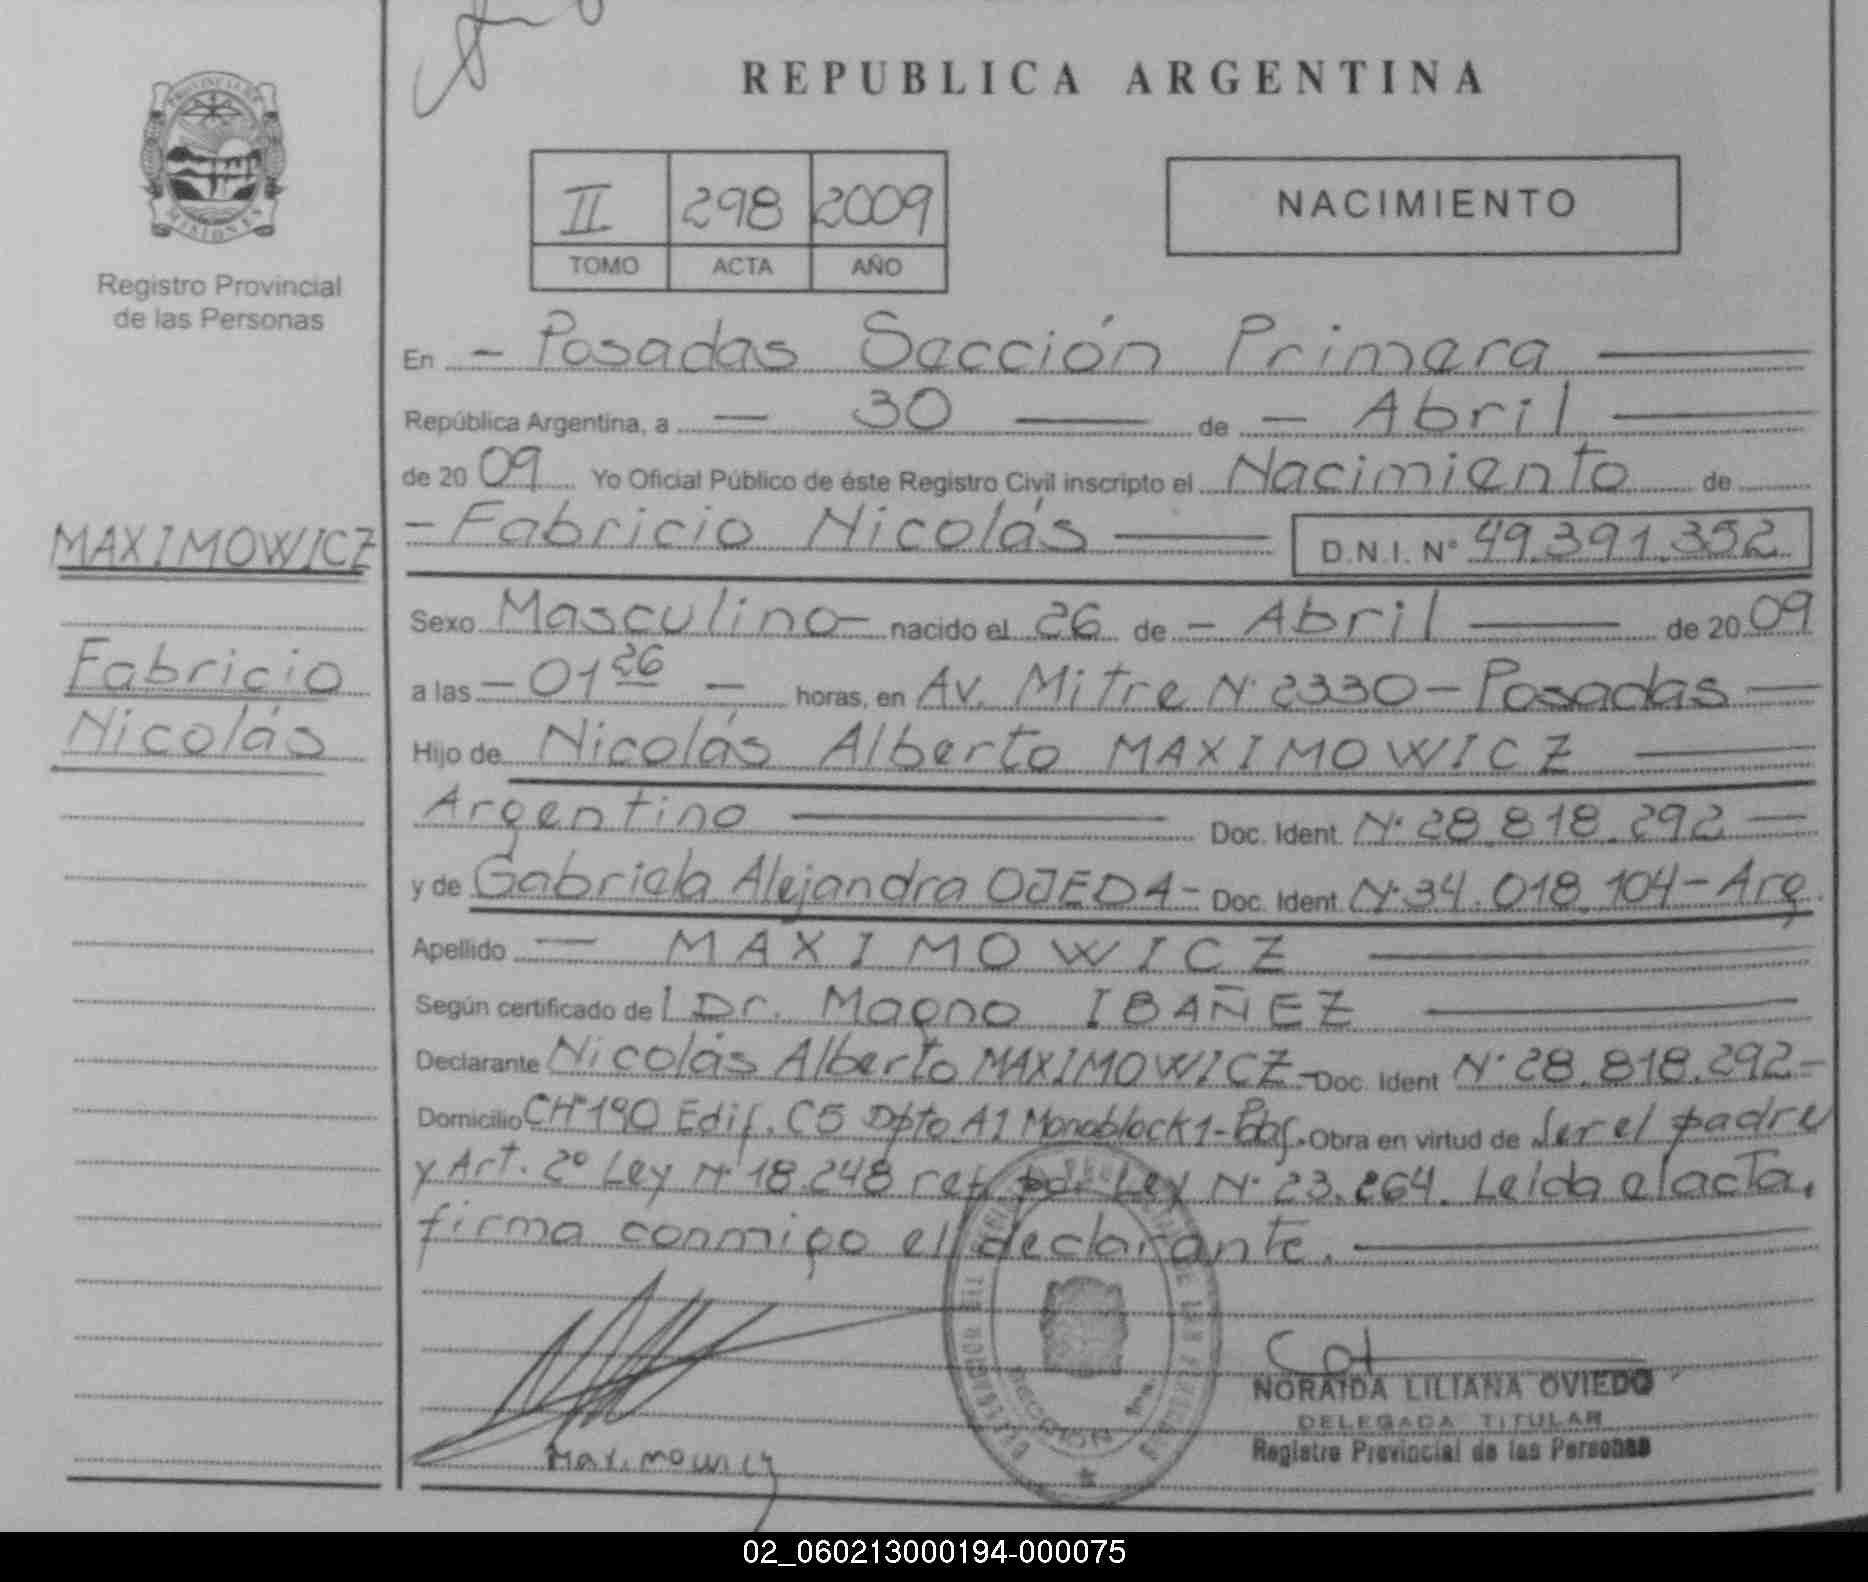 REPUBLICA ARGENTINA
PROVINCIA DE
MISIONES
Registro Provincial
de las Personas
II 298 2009
TOMO ACTA AÑO
NACIMIENTO
En - Posadas Sección Primera
República Argentina, a - 30 - de - Abril
de 2009 Yo Oficial Público de éste Registro Civil inscripto el Nacimiento de
MAXIMOWICZ
Fabricio
Nicolás
- Fabricio Nicolás - D.N.I. N° 49.391.352
Sexo Masculino - nacido el 26 de - Abril - de 2009
a las - 01 26 - horas, en Av. Mitre N° 2330 - Posadas -
Hijo de Nicolás Alberto MAXIMOWICZ -
Argentino - Doc. Ident. N° 28.818.292 -
y de Gabriela Alejandra OJEDA - Doc. Ident. N° 34.018.104 - Arg.
Apellido - MAXIMOWICZ -
Según certificado de l Dr. Magno IBAÑEZ -
Declarante Nicolás Alberto MAXIMOWICZ - Doc. Ident N° 28.818.292 -
Domicilio CH 190 Edif. C5 Dpto A1 Monoblock 1 - Pdas. Obra en virtud de Ser el padre
y Art. 2° Ley N° 18.248 ref. por Ley N° 23.264. Leída el acta,
firma conmigo el declarante.
Maximowicz
NORAIDA LILIANA OVIEDO
DELEGADA TITULAR
Registro Provincial de las Personas
02_060213000194-000075